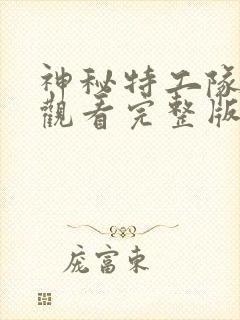 神秘特工隊
觀看完整版
庞富東